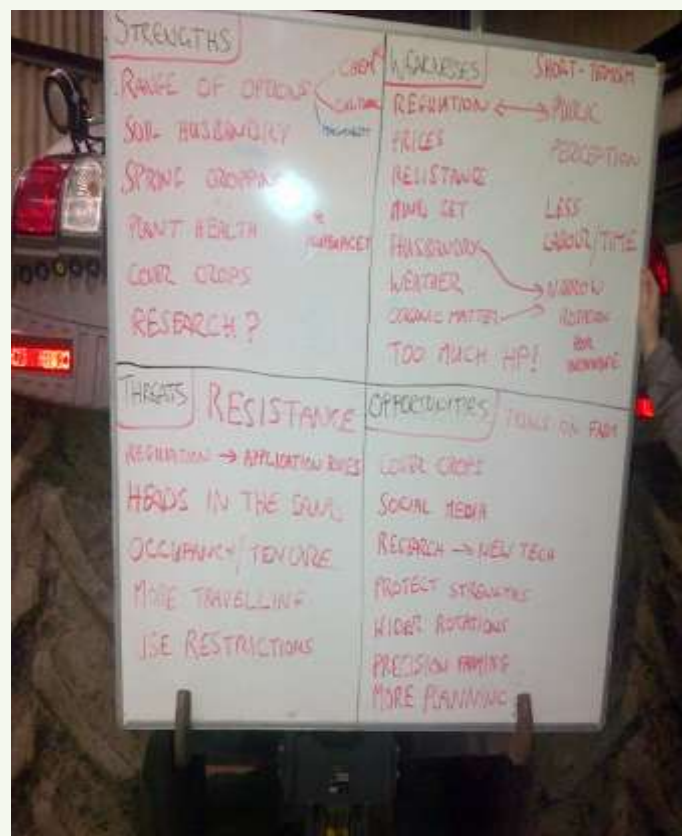 STRENGTHS
RANGE OF OPTIONS
CHEM
CULTURAL
SOIL HUSBANDRY
SPRING CROPPING
PLANT HEALTH
COVER CROPS
RESEARCH?
WEAKNESSES
SHORT-TERMISM
REGULATION ↔ PUBLIC
PERCEPTION
PRICES
RESISTANCE
MIND SET
LESS
LABOUR/TIME
HUSBANDRY
WEATHER
NARROW
ORGANIC MATTER
ROTATION
FOR
TOO MUCH HP!
THREATS
RESISTANCE
REGULATION → APPLICATION RULES
HEADS IN THE SAND
OCCUPANCY/TENURE
MORE TRAVELLING
USE RESTRICTIONS
OPPORTUNITIES
TRIALS ON FARM
COVER CROPS
SOCIAL MEDIA
RESEARCH → NEW TECH
PROTECT STRENGTHS
WIDER ROTATIONS
PRECISION FARMING
MORE PLANNING